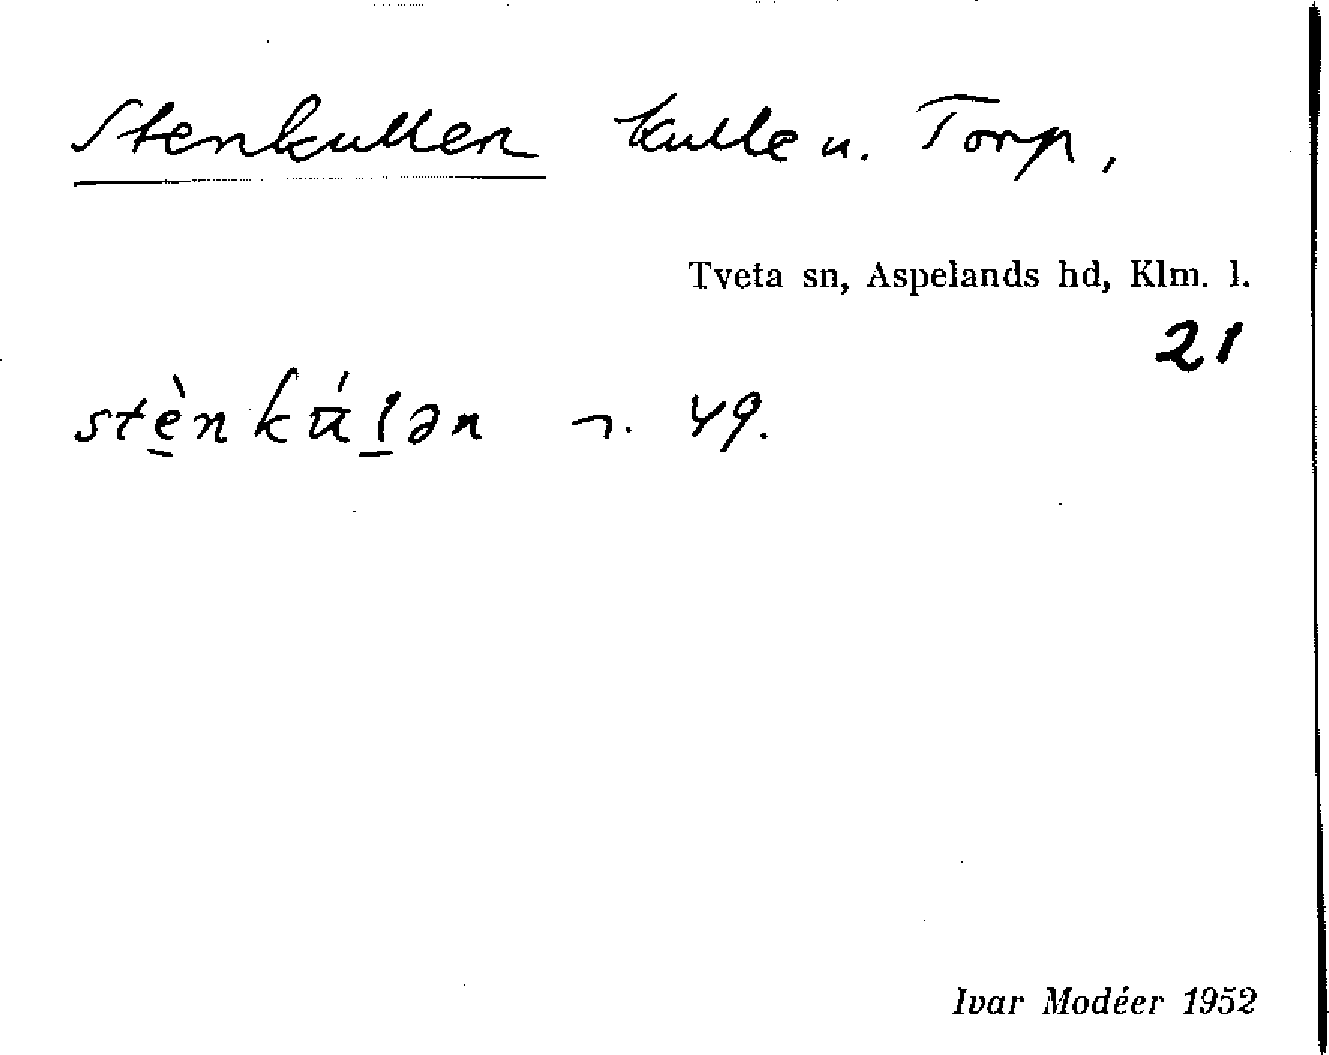 Stenkullen kulle u. Torp,
Tveta sn, Aspelands hd, Klm. l.
21
stè̱nkū́ḻən 49.
Ivar Modéer 1952